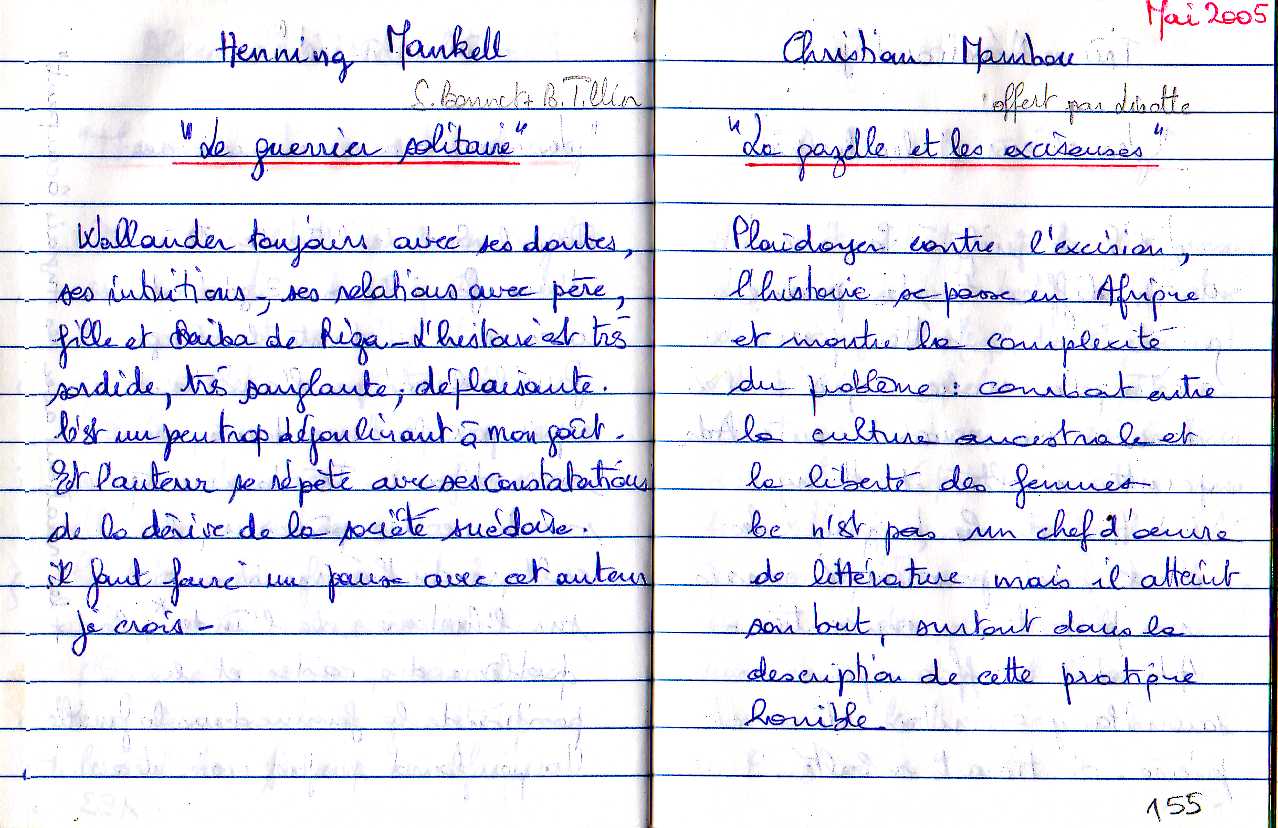 Henning Mankell
S. Bonnet + B. Tillin
"Le guerrier solitaire"
Wallander toujours avec ses doutes,
ses intuitions, ses relations avec père,
fille et Baiba de Riga - L'histoire est très
sordide, très sanglante, déplaisante.
C'est un peu trop dégoulinant à mon goût.
Et l'auteur se répète avec ses constatations
de la dérive de la société suédoise.
Il faut faire un pause avec cet auteur
je crois -
Mai 2005
Christian Mambou
offert par Lisotte
"La gazelle et les exciseuses"
Plaidoyer contre l'excision,
l'histoire se passe en Afrique
et montre la complexité
du problème : combat entre
la culture ancestrale et
la liberté des femmes
Ce n'est pas un chef d'oeuvre
de littérature mais il atteint
son but, surtout dans la
description de cette pratique
horrible
155